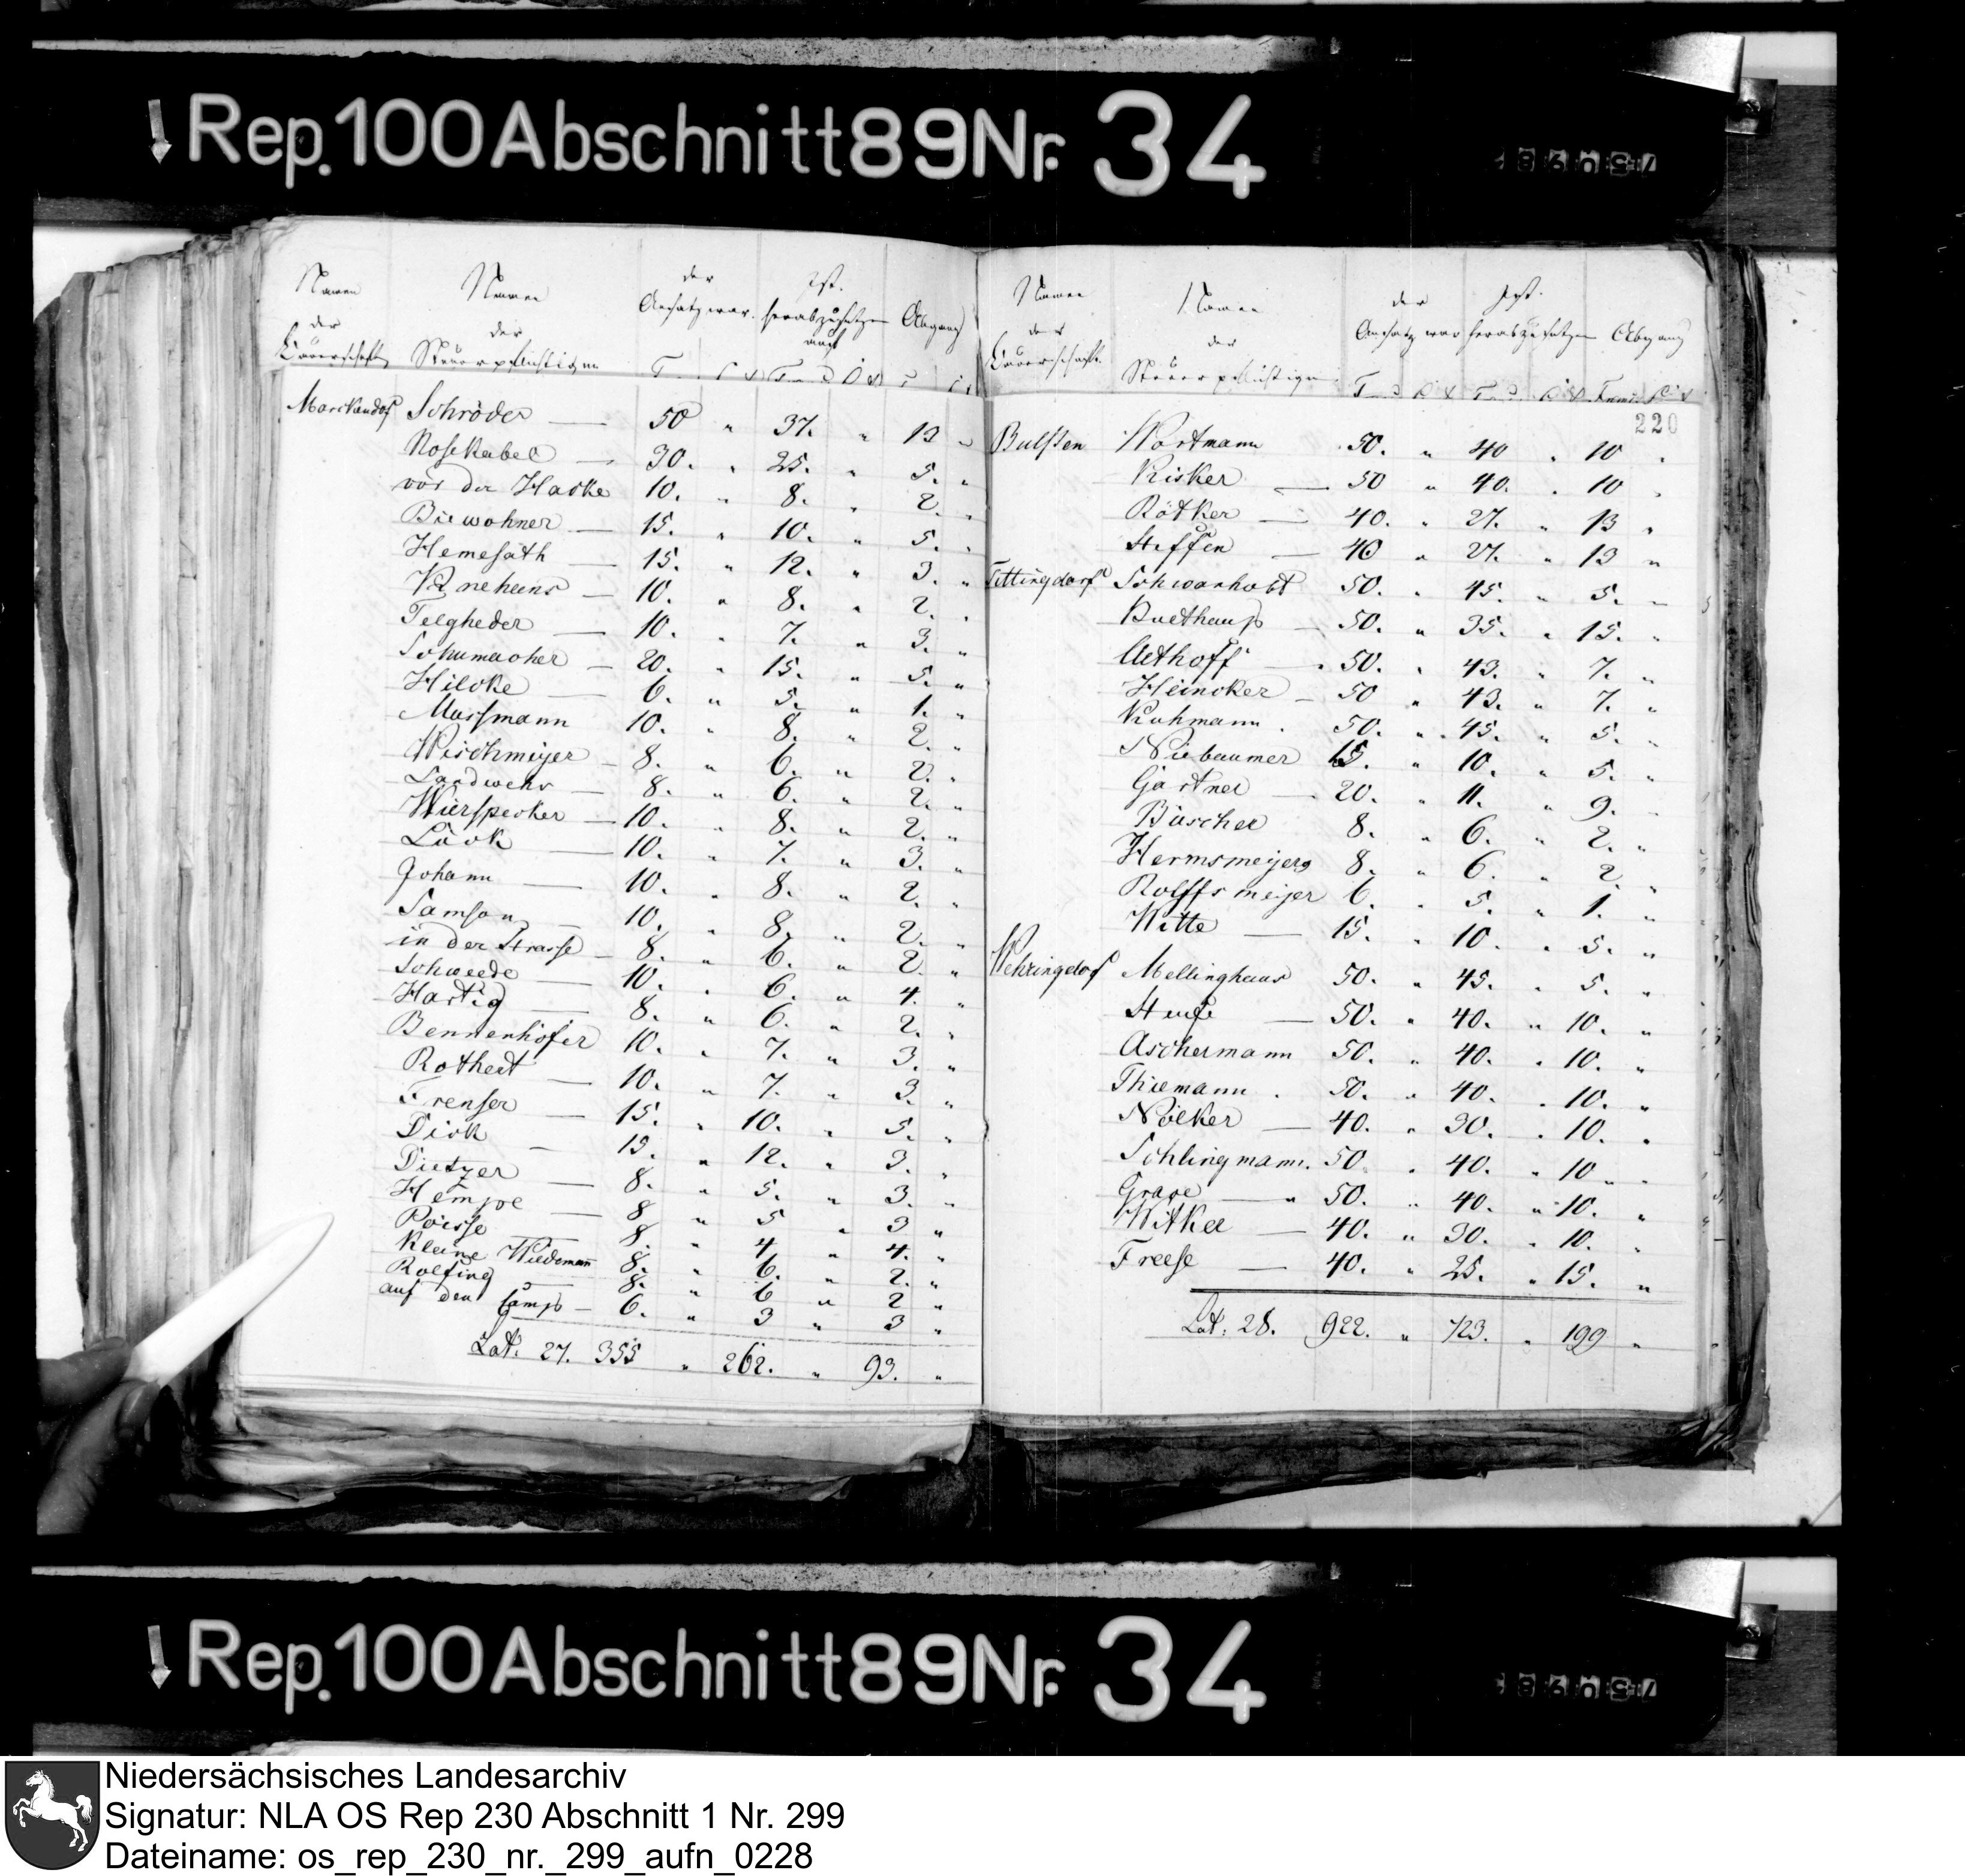 Rep. 100 Abschnitt 89 Nr. 34
Namen der Bauerschaft
Namen der Steuerpflichtigen
der Ansatz war
Ist herabzusetzen auf
Abgang
Marckendof Schröder — 50 " 37. " 13 "
Nosekabel — 30. " 25. " 5. "
vor der Harke 10. " 8. " 2. "
Biewohner — 15. " 10. " 5. "
Hemesath — 15. " 12. " 3. "
10. " 8. " 2. "
Telgheder — 10. " 7. " 3. "
Schumacher — 20. " 15. " 5. "
Hilcke — 6. " 5. " 1. "
Massmann 10. " 8. " 2. "
Wischmeijer — 8. " 6. " 2. "
Landwehr — 8. " 6. " 2. "
10. " 8. " 2. "
10. " 7. " 3. "
Johann — 10. " 8. " 2. "
Samson — 10. " 8. " 2. "
in der Strasse — 8. " 6. " 2. "
Schweede 10. " 6. " 4. "
Hartig — 8. " 6. " 2. "
Bennenhöfer 10. " 7. " 3. "
Rothert — 10. " 7. " 3. "
Frenser — 15. " 10. " 5. "
Dirk — 15. " 12. " 3. "
8. " 5. " 3. "
Hempe — 8 " 5 " 3 "
8. " 4 " 4. "
Kleine Wiedemann 8. " 6. " 2. "
Rolfing — 8. " 6 " 2 "
auf den Camp — 6. " 3 " 3 "
Lat: 27. 355 " 262. " 93. "
Namen der Bauerschaft
Namen der Steuerpflichtigen
der Ansatz war
Ist herabzusetzen
Abgang
220
Bulsten Wortmann 50. " 40 " 10 "
Kisker — 50 " 40. " 10 "
Rötker — 40. " 27. " 13 "
Steffen — 40 " 27. " 13 "
Tittingdorf 50. " 45. " 5. "
50. " 35. " 15. "
Althoff — 50. " 43. " 7. "
Heincker — 50 " 43. " 7. "
Kuhmann . 50. " 45. " 5. "
Niebaumer 15. " 10. " 5. "
Gärtner — 20. " 11. " 9. "
Büscher 8. " 6. " 2. "
Hermsmeijer 8. " 6. " 2. "
Rolffsmeijer 6. " 5. " 1. "
Witte — 15. " 10. " 5. "
Wehringdorf Mellinghaus 50. " 45. " 5. "
50. " 40. " 10. "
Aschermann 50. " 40. " 10. "
Thiemann . 50. " 40. " 10. "
Nölker — 40. " 30. " 10. "
Schlingmann. 50. " 40. " 10 "
Grave — 50. " 40. " 10. "
Witker — 40. " 30. " 10. "
Freese — 40. " 25. " 15. "
Lat: 28. 922. " 723. " 199 "
Rep. 100 Abschnitt 89 Nr. 34
Niedersächsisches Landesarchiv
Signatur: NLA OS Rep 230 Abschnitt 1 Nr. 299
Dateiname: os_rep_230_nr._299_aufn_0228